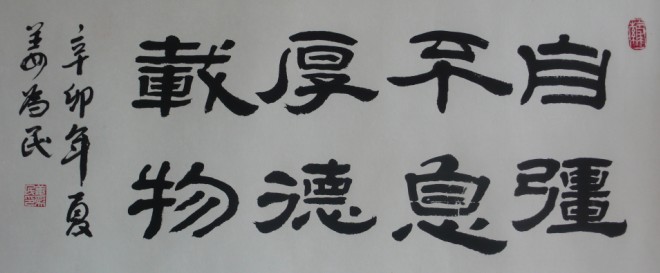 自彊
不息
厚德
載物
辛卯年夏
姜為民